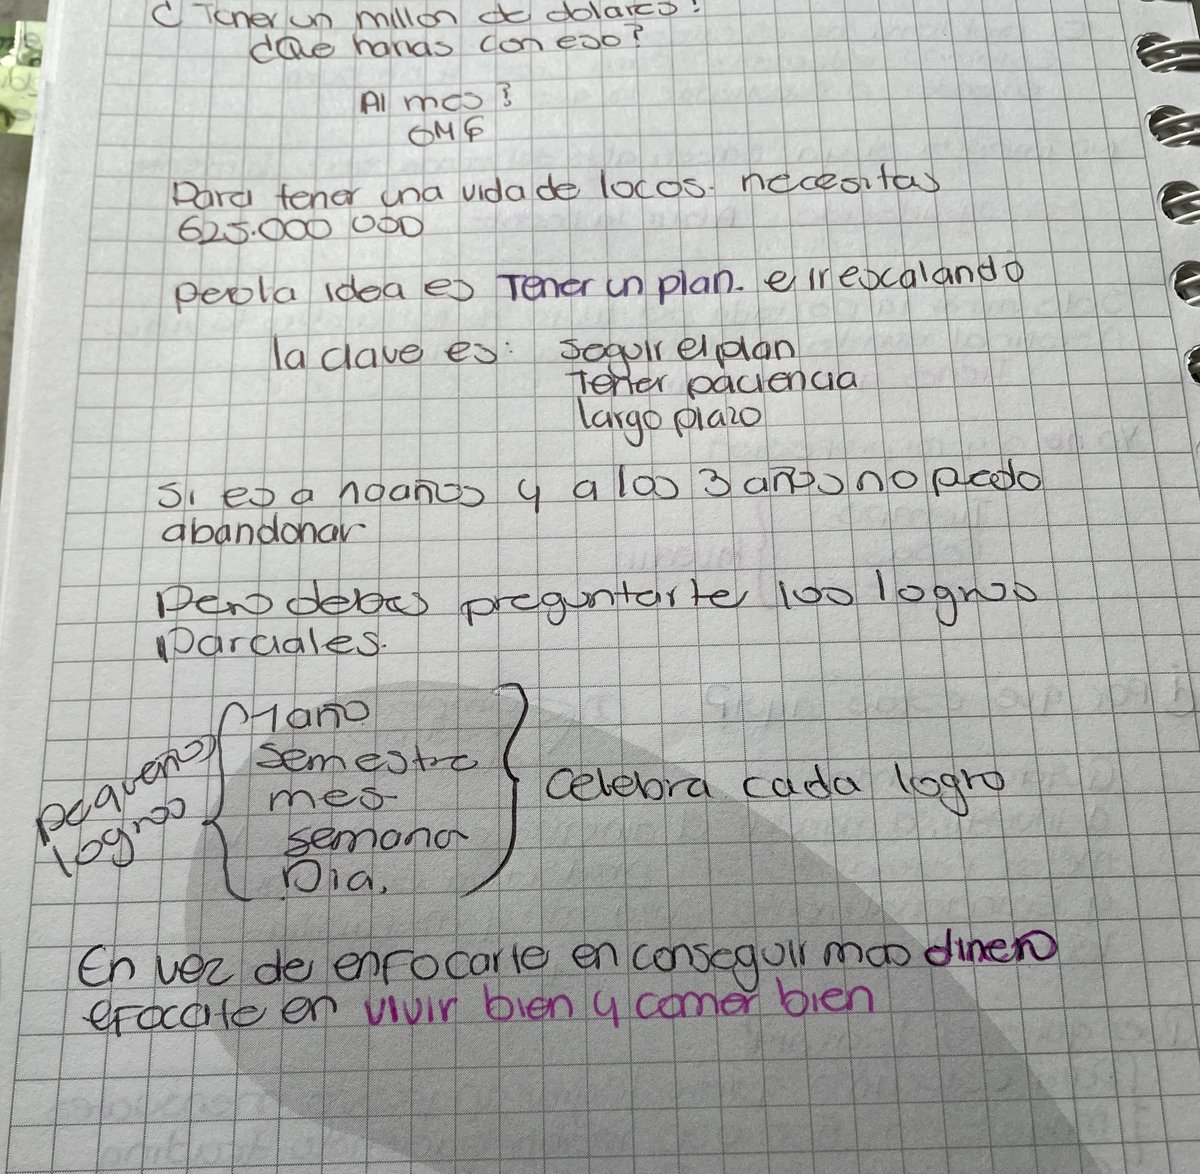 ¿Tener un millon de dolares?
¿Que harias con eso?
Al mes?
OMG
Para tener una vida de locos. necesitas
625.000 000
pero la idea es Tener un plan. e ir escalando
la clave es: seguir el plan
Tener paciencia
largo plazo
Si es a 10 años y a los 3 años no puedo
abandonar
Pero debes preguntarte los logros
parciales.
pequeños
logros
1 año
semestre
mes
semana
Dia.
Celebra cada logro
En vez de enfocarte en conseguir mas dinero
efocate en vivir bien y comer bien